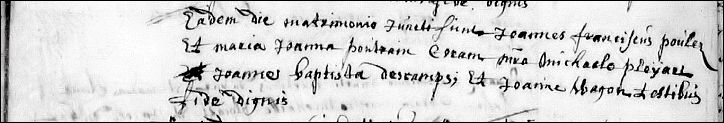 dignis
Eadem die matrimonio Juncti sunt Joannes franciscus poulez
Et maria Joanna poutram Coram mro Michaele
Joannes baptista descamps; Et Joanne Wagon testibus
fide dignis